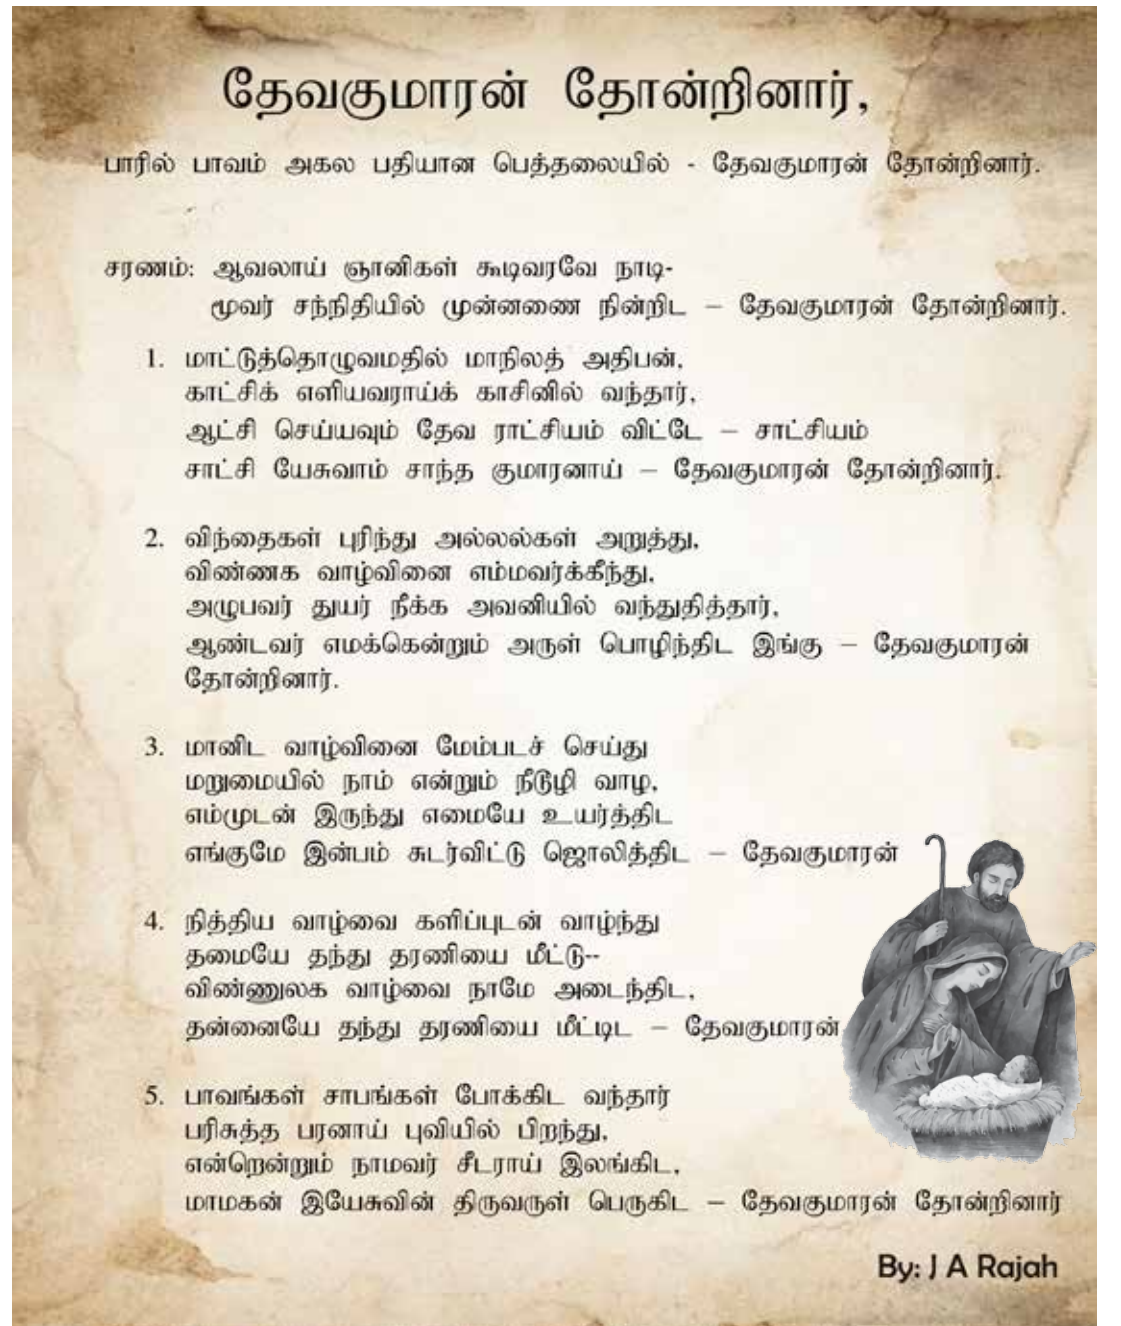 தேவகுமாரன் தோன்றினார்,
பாரில் பாவம் அகல பதியான பெத்தலையில் - தேவகுமாரன் தோன்றினார்.
சரணம்: ஆவலாய் ஞானிகள் கூடிவரவே நாடி-
மூவர் சந்நிதியில் முன்னணை நின்றிட – தேவகுமாரன் தோன்றினார்.
1. மாட்டுத்தொழுவமதில் மாநிலத் அதிபன்,
காட்சிக் எளியவராய்க் காசினில் வந்தார்,
ஆட்சி செய்யவும் தேவ ராட்சியம் விட்டே – சாட்சியம்
சாட்சி யேசுவாம் சாந்த குமாரனாய் – தேவகுமாரன் தோன்றினார்.
2. விந்தைகள் புரிந்து அல்லல்கள் அறுத்து,
விண்ணக வாழ்வினை எம்மவர்க்கீந்து,
அழுபவர் துயர் நீக்க அவனியில் வந்துதித்தார்,
ஆண்டவர் எமக்கென்றும் அருள் பொழிந்திட இங்கு – தேவகுமாரன்
தோன்றினார்.
3. மானிட வாழ்வினை மேம்படச் செய்து
மறுமையில் நாம் என்றும் நீடூழி வாழ,
எம்முடன் இருந்து எமையே உயர்த்திட
எங்குமே இன்பம் சுடர்விட்டு ஜொலித்திட – தேவகுமாரன்
4. நித்திய வாழ்வை களிப்புடன் வாழ்ந்து
தமையே தந்து தரணியை மீட்டு--
விண்ணுலக வாழ்வை நாமே அடைந்திட,
தன்னையே தந்து தரணியை மீட்டிட – தேவகுமாரன்
5. பாவங்கள் சாபங்கள் போக்கிட வந்தார்
பரிசுத்த பரனாய் புவியில் பிறந்து,
என்றென்றும் நாமவர் சீடராய் இலங்கிட,
மாமகன் இயேசுவின் திருவருள் பெருகிட – தேவகுமாரன் தோன்றினார்
By: J A Rajah